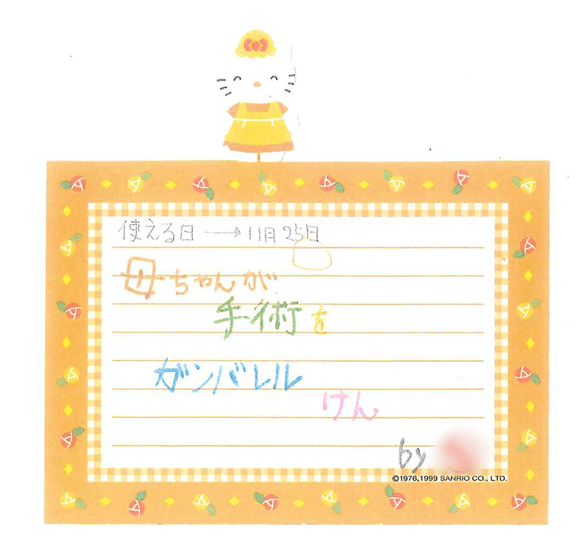 使える日→11月25日
母ちゃんが
手術を
ガンバレル
けん
by
©1976,1999 SANRIO CO., LTD.